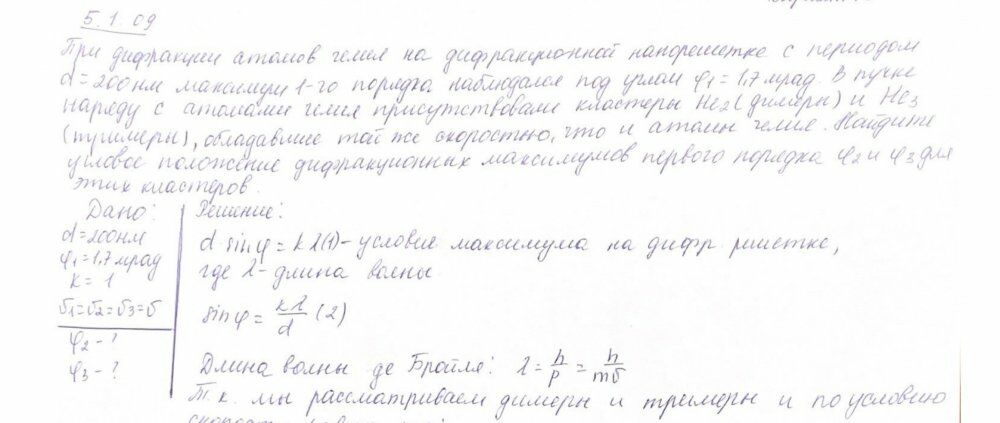 5.1.09
При дифракции атомов гелия на дифракционной нанорешетке с периодом
d = 200 нм максимум 1-го порядка наблюдался под углом φ1 = 1,7 мрад. В пучке
наряду с атомами гелия присутствовали кластеры He2 (димеры) и He3
(тримеры), обладавшие той же скоростью, что и атомы гелия. Найдите
угловое положение дифракционных максимумов первого порядка φ2 и φ3 для
этих кластеров.
Дано:
d = 200 нм
φ1 = 1,7 мрад
k = 1
υ1 = υ2 = υ3 = υ
φ2 - ?
φ3 - ?
Решение:
d·sinφ = kλ (1) - условие максимума на дифр. решетке,
где λ - длина волны.
sinφ = kλ/d (2)
Длина волны де Бройля: λ = h/p = h/mυ
Т.к. мы рассматриваем димеры и тримеры и по условию